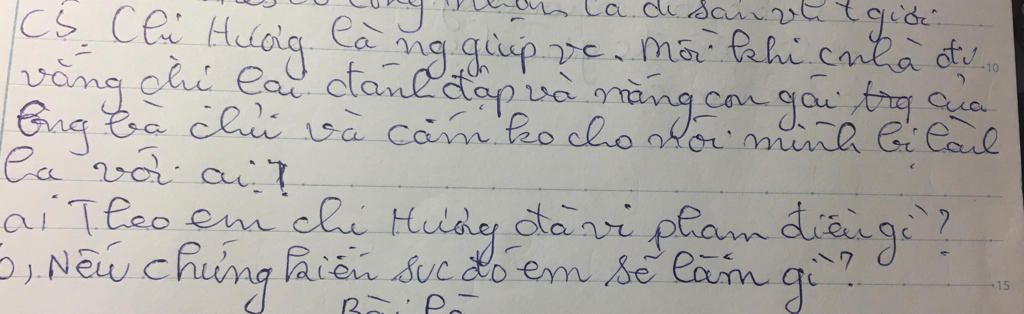 là di sản vt t giới
C5 Chị Hương là ng giúp vc. mỗi khi cnhà đi
vắng chị lại đánh đập và mắng con gái trg của
ông bà chủ và cấm ko cho nói mình bị đánh
la với ai!
a) Theo em chị Hương đã vi phạm điều gì?
b, Nếu chứng kiến sực đó em sẽ làm gì?